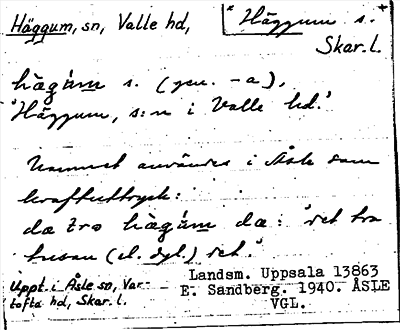 Häggum, sn, Valle hd,
* Häggum s. +
Skar. l.
hägùm s. (gen. -a),
'Häggum, s:n i Valle hd.'
Namnet användes i Åsle som
kraftuttryck:
da tro hägùm da: 'det tro
husan (el. dyl.) det.'
Uppt. i Åsle sn, Var-
tofta hd, Skar. l.
Landsm. Uppsala 13863
E. Sandberg. 1940. ÅSLE
VGL.